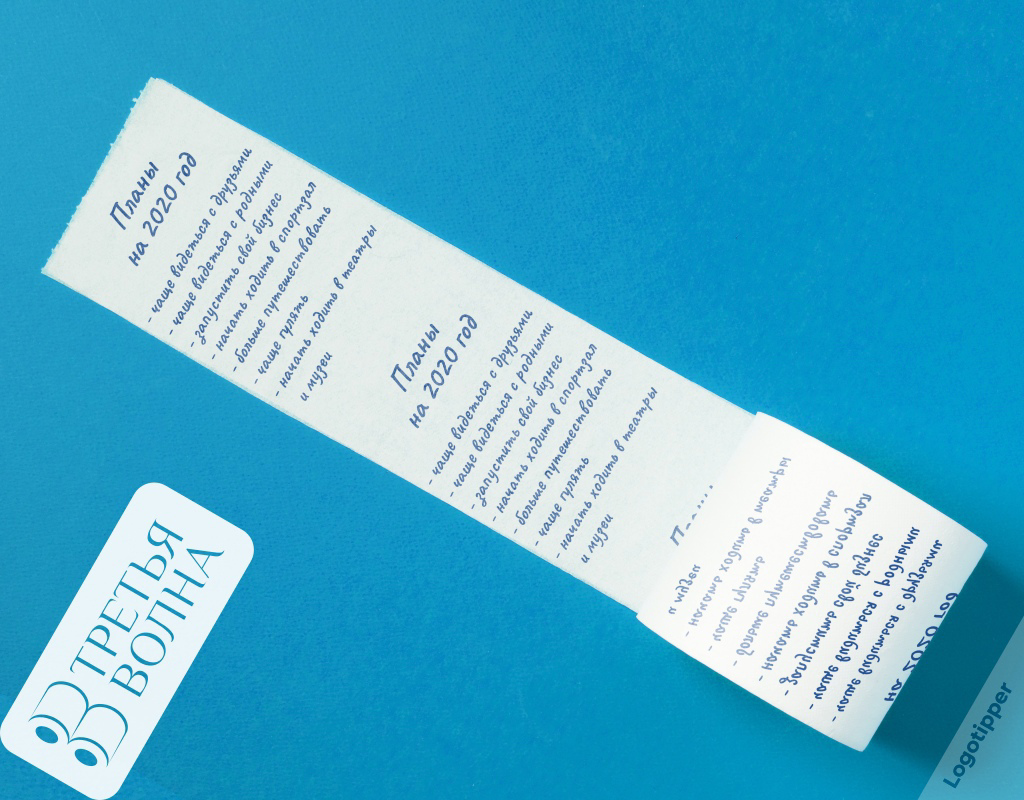 Планы
на 2020 год
- чаще видеться с друзьями
- чаще видеться с родными
- запустить свой бизнес
- начать ходить в спортзал
- больше путешествовать
- чаще гулять
- начать ходить в театры
и музеи
Планы
на 2020 год
- чаще видеться с друзьями
- чаще видеться с родными
- запустить свой бизнес
- начать ходить в спортзал
- больше путешествовать
- чаще гулять
- начать ходить в театры
и музеи
Планы
и музеи
- начать ходить в театры
- чаще гулять
- больше путешествовать
- начать ходить в спортзал
- запустить свой бизнес
- чаще видеться с родными
- чаще видеться с друзьями
на 2020 год
ТРЕТЬЯ
ВОЛНА
Logotipper